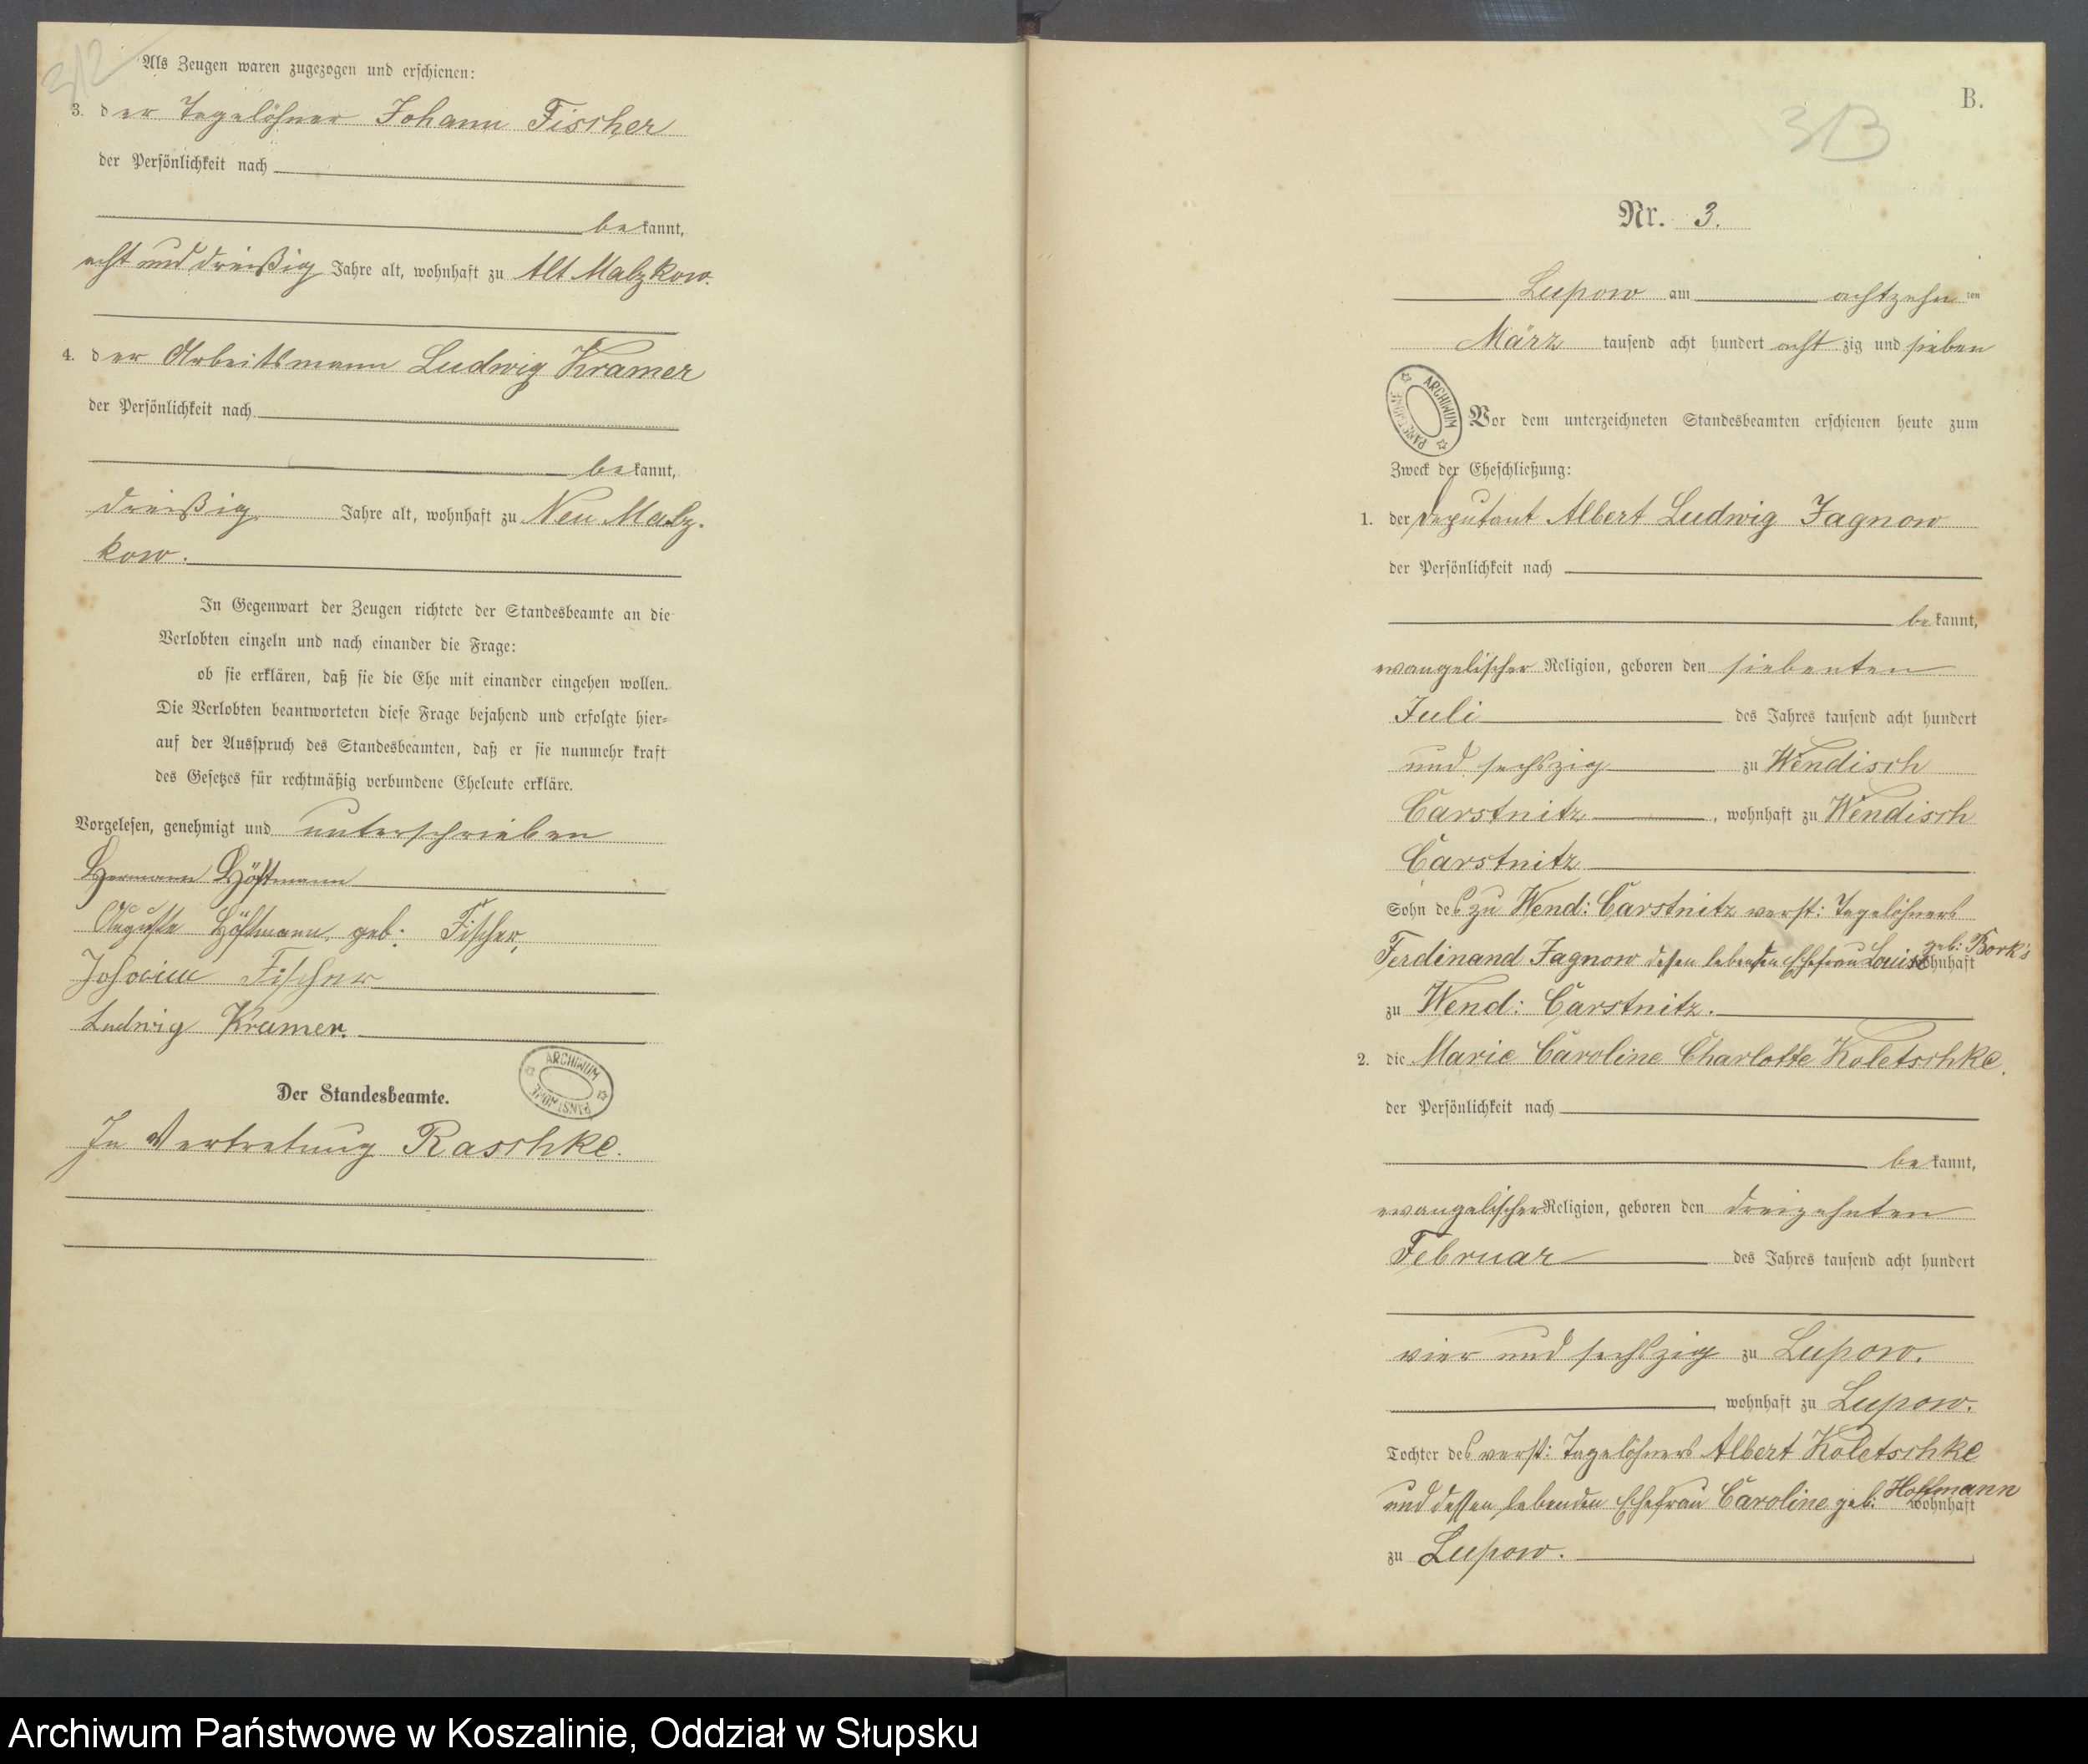 3/2
Als Zeugen waren zugezogen und erschienen:
3. der Tagelöhner Johann Fischer
der Persönlichkeit nach
bekannt,
acht und dreißig Jahre alt, wohnhaft zu Alt Malzkow.
4. der Arbeitsmann Ludwig Kramer
der Persönlichkeit nach
bekannt,
dreißig Jahre alt, wohnhaft zu Neu Malz-
kow.
In Gegenwart der Zeugen richtete der Standesbeamte an die
Verlobten einzeln und nach einander die Frage:
ob sie erklären, daß sie die Ehe mit einander eingehen wollen.
Die Verlobten beantworteten diese Frage bejahend und erfolgte hier-
auf der Ausspruch des Standesbeamten, daß er sie nunmehr kraft
des Gesetzes für rechtmäßig verbundene Eheleute erkläre.
Vorgelesen, genehmigt und unterschrieben
Hermann Höftmann
Auguste Höftmann, geb: Fischer,
Johann Fischer
Ludwig Kramer.
Der Standesbeamte.
ARCHIWUM PAŃSTWOWE
In Vertretung Raschke.
B.
3/3
Nr. 3.
Lupow am achtzehn ten
März tausend acht hundert acht zig und sieben
ARCHIWUM PAŃSTWOWE
Vor dem unterzeichneten Standesbeamten erschienen heute zum
Zweck der Eheschließung:
1. der Deputant Albert Ludwig Jagnow
der Persönlichkeit nach
bekannt,
evangelischer Religion, geboren den siebenten
Juli des Jahres tausend acht hundert
und sechszig zu Wendisch
Carstnitz, wohnhaft zu Wendisch
Carstnitz
Sohn des zu Wend: Carstnitz verst: Tagelöhners
Ferdinand Jagnow dessen lebenden Ehefrau Louise geb: Bork's wohnhaft
zu Wend: Carstnitz.
2. die Marie Caroline Charlotte Koletschke.
der Persönlichkeit nach
bekannt,
evangelischer Religion, geboren den dreizehnten
Februar des Jahres tausend acht hundert
vier und sechszig zu Lupow.
, wohnhaft zu Lupow.
Tochter des verst: Tagelöhners Albert Koletschke
und dessen lebenden Ehefrau Caroline geb: Hoffmann wohnhaft
zu Lupow.
Archiwum Państwowe w Koszalinie, Oddział w Słupsku